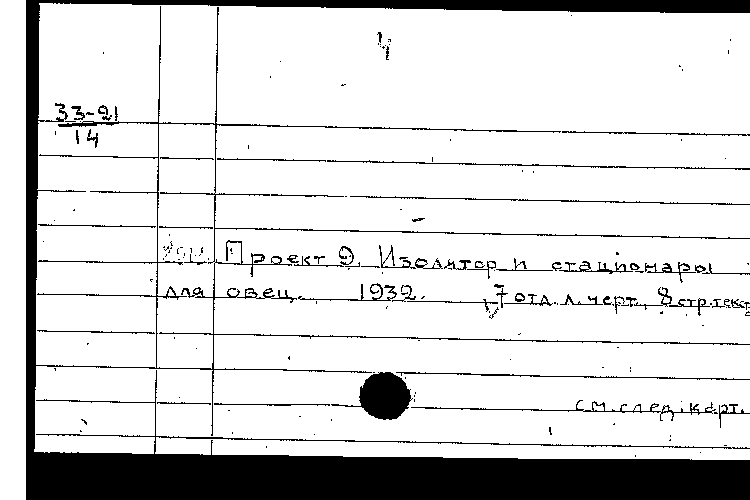 4
33-21
14
Проект 9. Изолятор и стационары
для овец. 1932. 7 отд. л. черт., 8 стр. текст
см. след. карт.